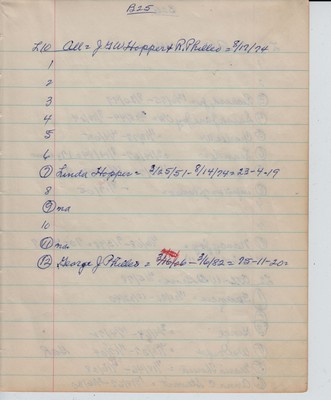 B25
L10 All = J.G.W Hopper & R. Philleo = 8/17/74
1
2
3
4
5
6
7 Linda Hopper = 3/25/51 - 8/14/74 = 23-4-19
8
9 na
10
11 na
12 George J Philleo = 3/16/06 - 3/6/82 = 75-11-20